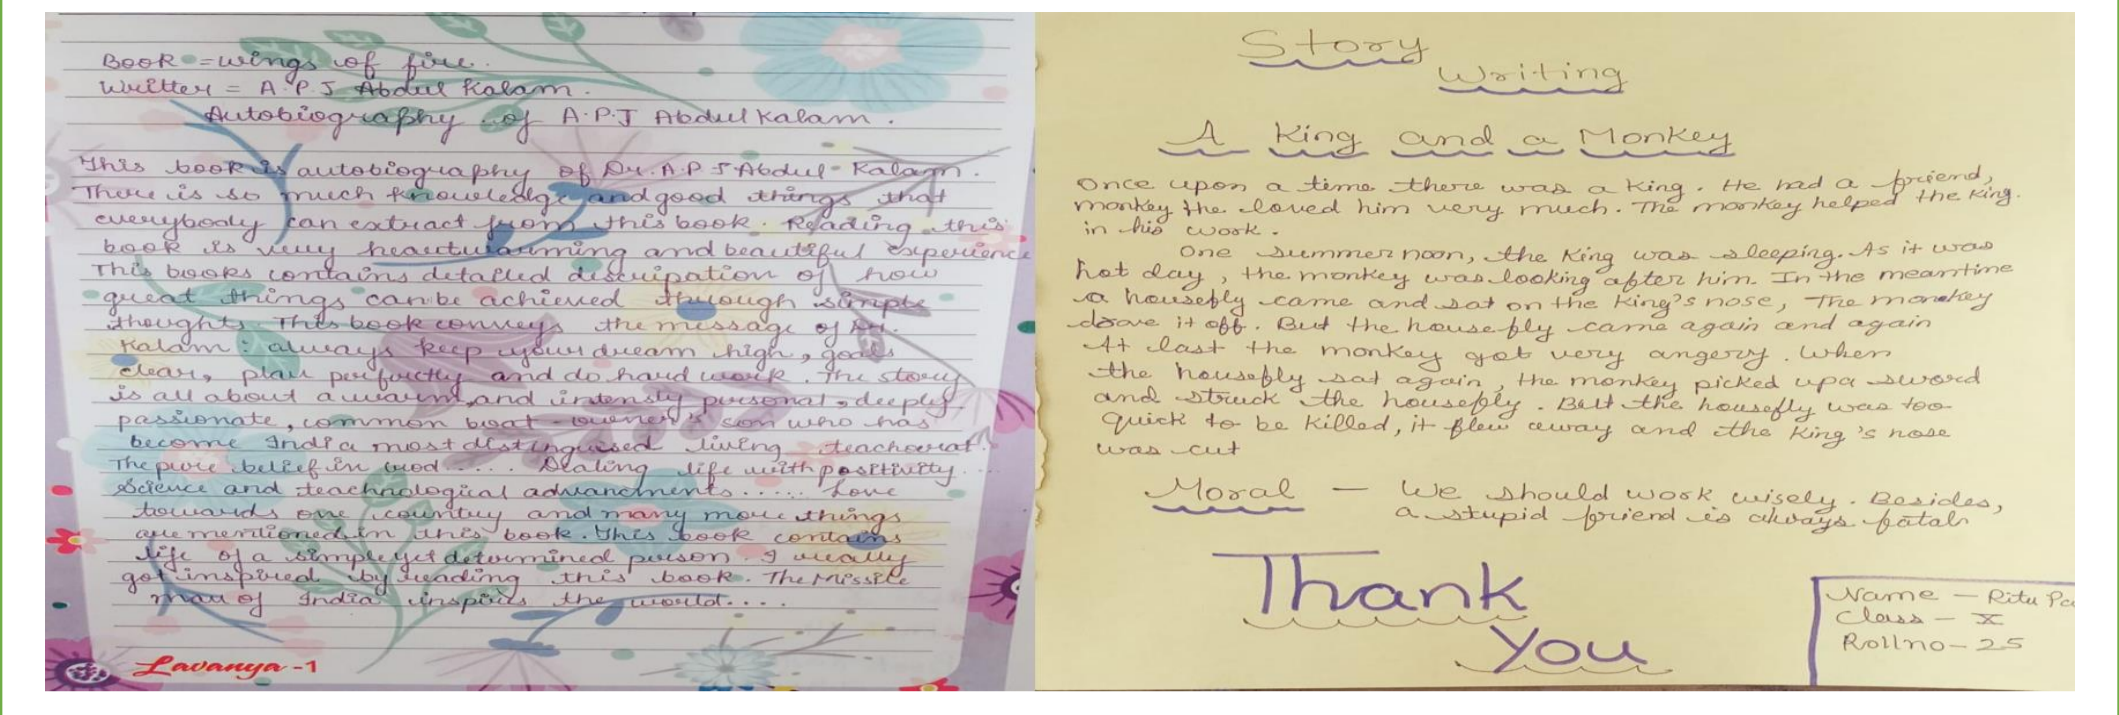 Book = wings of fire.
Writter = A.P.J Abdul Kalam.
Autobiography of A.P.J Abdul Kalam.
This book is autobiography of Dr. A.P J Abdul Kalam.
There is so much knowledge and good things that
everybody can extract from this book. Reading this
book is very heartwarming and beautiful experience
This books contains detailed discription of how
great things can be achieved through simple
thoughts. This book conveys the message of
Kalam: always keep your dream high, goals
clear, plan perfectly and do hard work. The story
is all about a warm and intensly personal, deeply
passionate, common boat-owner's son who has
become India most distinguised living
The pure belief in .... Dealing life with positivity ...
Science and teachnological advancments ..... Love
towards one country and many more things
are mentioned in this book. This book contains
life of a simple yet determined person. I really
got inspired by reading this book. The Missile
man of India inspires the world....
Lavanya -1
Story
Writing
A King and a Monkey
Once upon a time there was a King. He had a friend,
monkey the loved him very much. The monkey helped the King.
in his work.
One summer noon, the King was sleeping. As it was
hot day, the monkey was looking after him. In the meantime
a housefly came and sat on the King's nose, The monkey
drove it off. But the housefly came again and again
At last the monkey got very angery. When
the housefly sat again, the monkey picked up a sword
and struck the housefly. But the housefly was too
quick to be killed, it flew away and the King's nose
was cut
Moral - We should work wisely. Besides,
a stupid friend is always fatal
Thank
You
Name - Ritu
Class - X
Rollno - 25